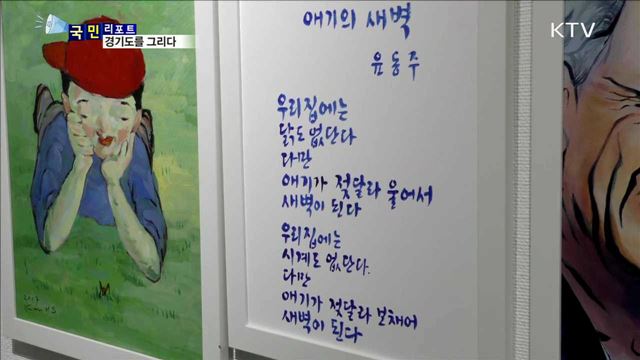 국민 리포트
경기도를 그리다
KTV
애기의 새벽
윤동주
우리집에는
닭도 없단다
다만
애기가 젖달라 울어서
새벽이 된다
우리집에는
시계도 없단다.
다만
애기가 젖달라 보채어
새벽이 된다
2017
Kim H S